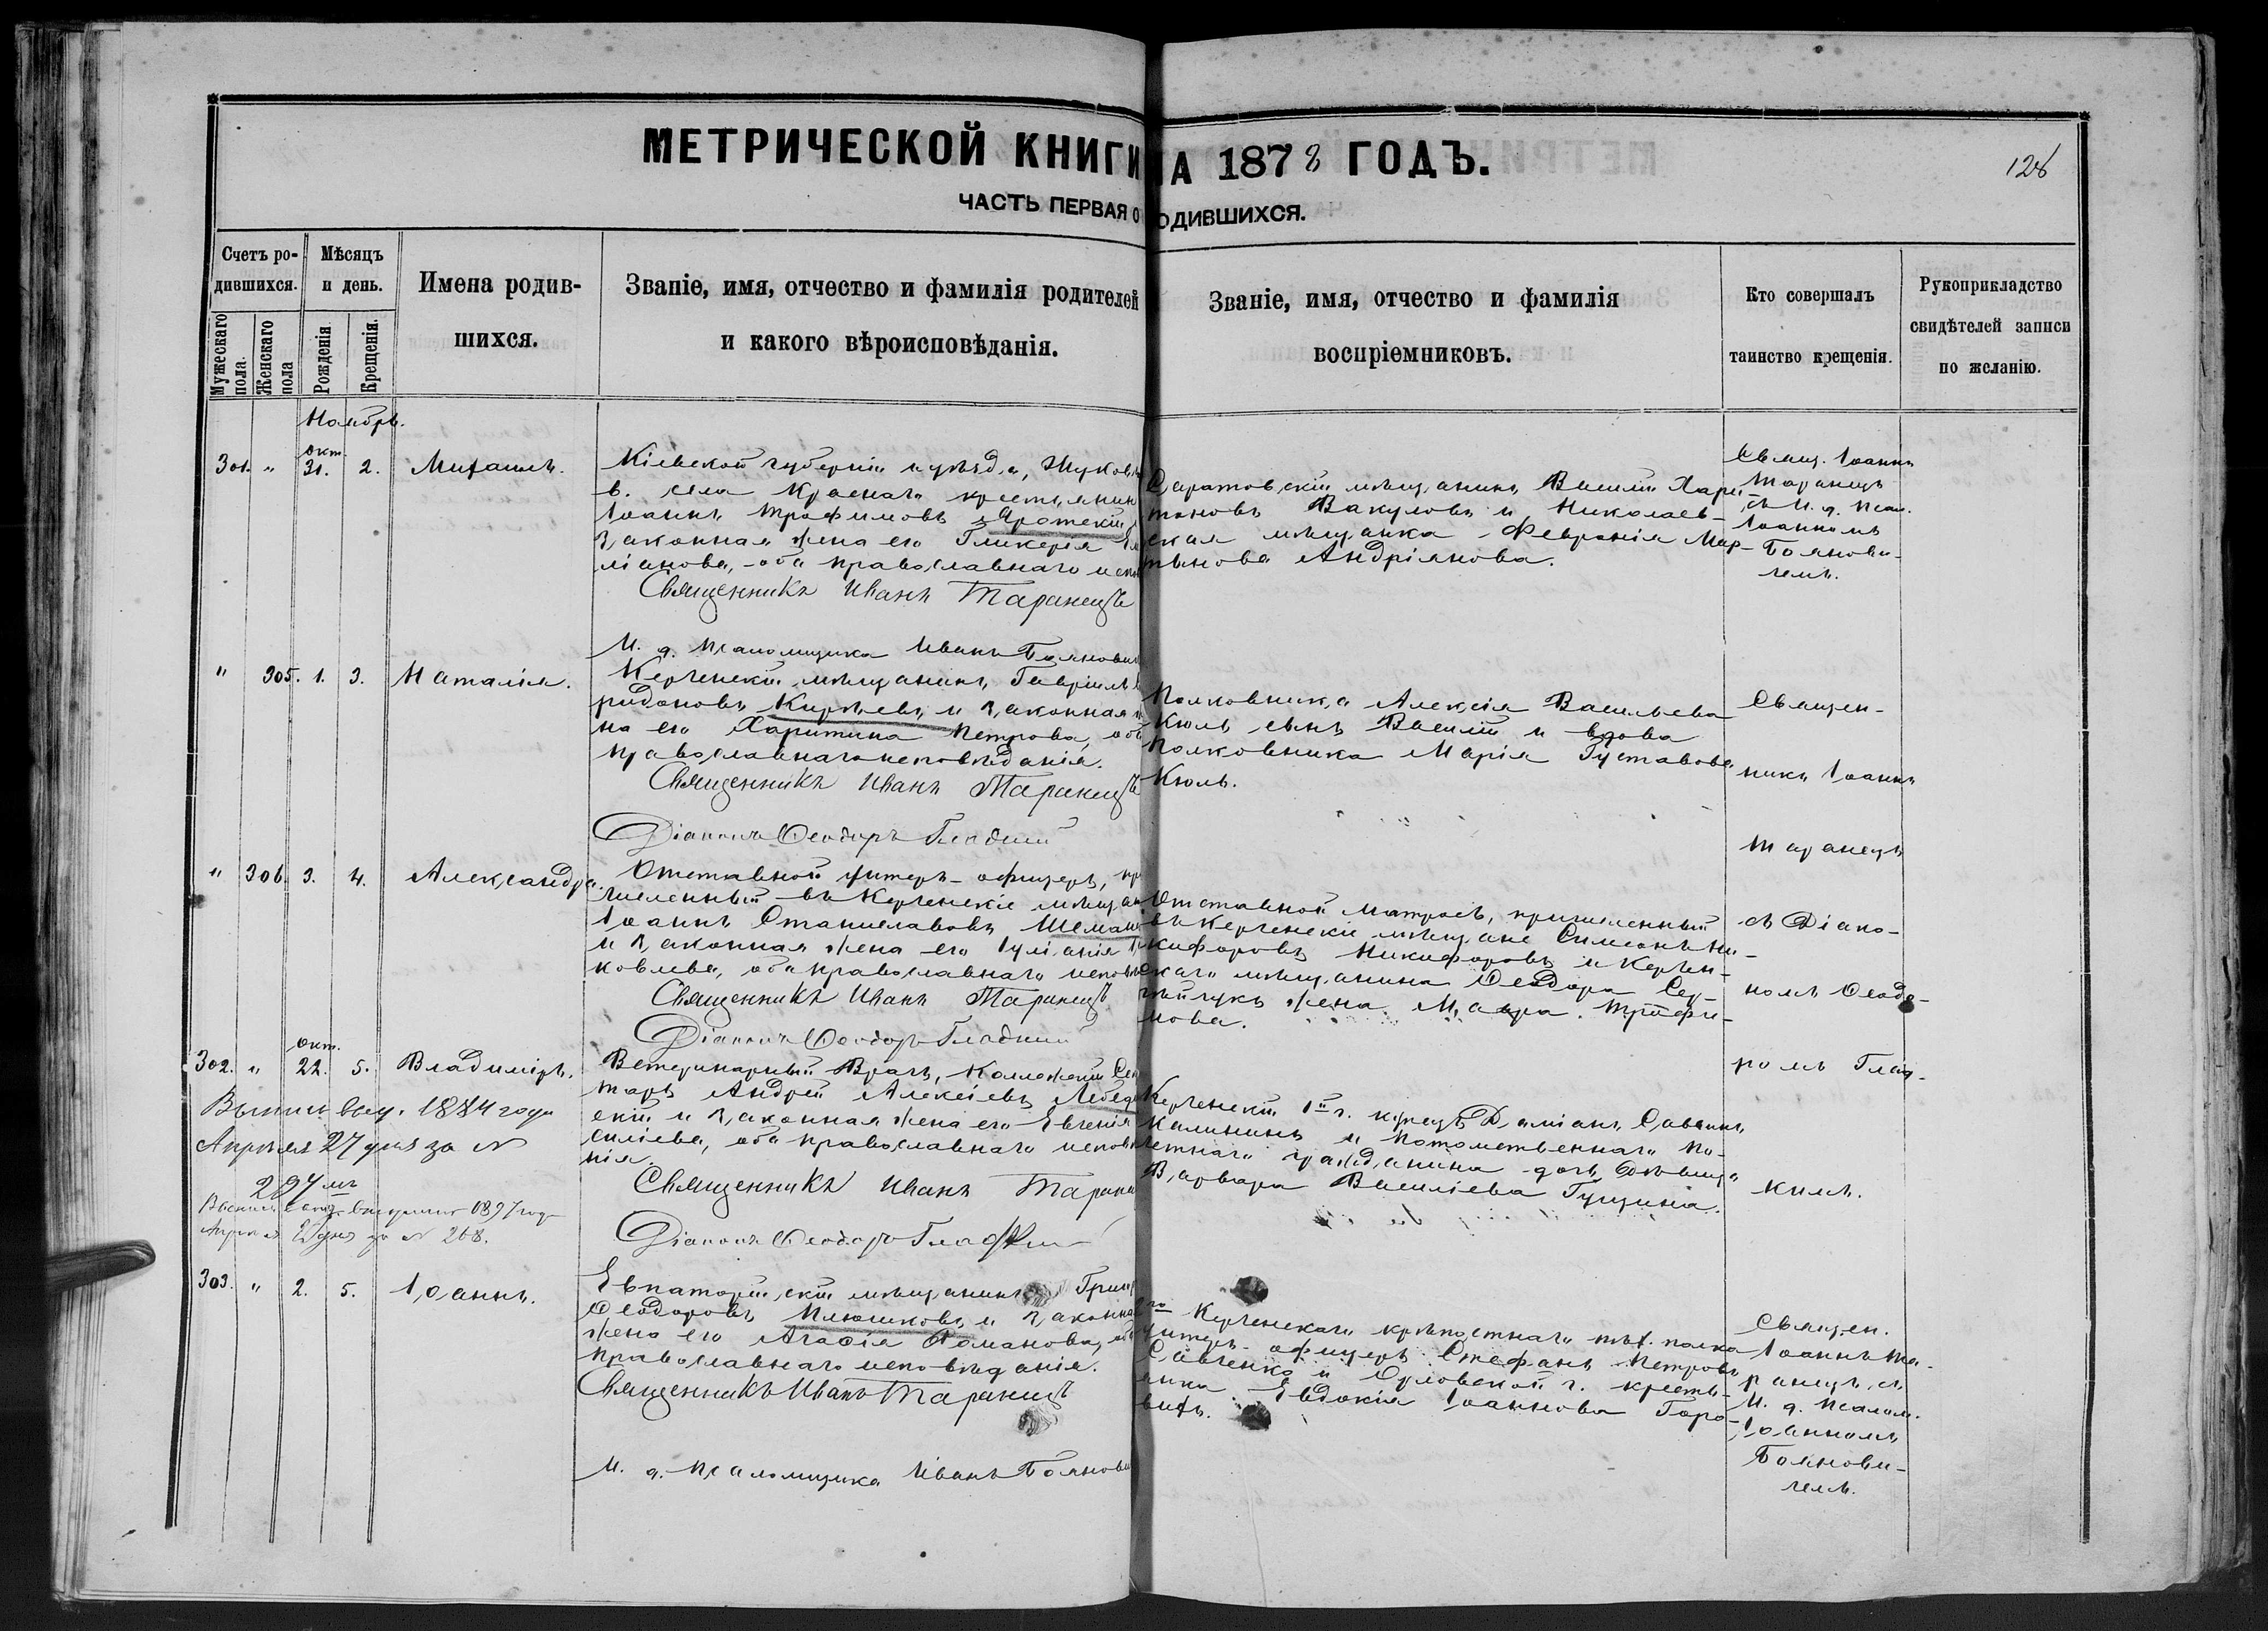 МЕТРИЧЕСКОЙ КНИГИ
НА 1878 ГОДЪ.
128
ЧАСТЬ ПЕРВАЯ О
ОДИВШИХСЯ.
Счетъ ро-
дившихся.
Мужескаго
пола.
Женскаго
пола
Мѣсяцъ
и день.
Рожденія
Крещенія.
Имена родив-
шихся.
Званіе, имя, отчество и фамилія родителей
и какого вѣроисповѣданія.
Званіе, имя, отчество и фамилія
воспріемниковъ.
Кто совершалъ
таинство крещенія.
Рукоприкладство
свидѣтелей записи
по желанію.
Ноябрь.
301. " окт. 31. 2. Михаилъ.
Кіевской губерніи и уѣзда, Жуков
в. села Краснаго крестьянинъ
Іоаннъ Трофимовъ
законная жена его Гликерія Ем
ліанова, оба православнаго испо
Священникъ Иванъ Таранецъ
И. д. псаломщика Иванъ Боянович
Саратовскій мѣщанинъ Василій Хари
тоновъ Вакуловъ и Николаев-
ская мѣщанка Февронія Мар-
тынова Андріянова.
Свящ. Іоаннъ
Таранецъ
съ И. д. псал.
Іоанномъ
Боянови-
чемъ.
" 305. 1. 3. Наталія.
Керченскій мѣщанинъ Гавріилъ
ридоновъ Киріевъ и законная
на его Харитина Петрова, оба
православнаго исповѣданія.
Священникъ Иванъ Таранецъ
Діаконъ Ѳеодоръ Гладкий
Полковника Алексія Васильева
Кюль сынъ Василій и вдова
Полковника Марія Густавова
Кюль.
Священ-
никъ Іоаннъ
Таранецъ
" 306. 3. 4. Александра.
Отставной унтеръ-офицеръ, при
численный въ Керченскіе мѣщане
Іоаннъ Станиславовъ Шеман
и законная жена его Іуліанія
ковлева, оба православнаго исповѣ
Священникъ Иванъ Таранецъ
Діаконъ Ѳеодоръ Гладкий
Отставной матросъ, причисленный
въ Керченскіе мѣщане Симеонъ Ни-
кифоровъ Никифоровъ и Керчен-
скаго мѣщанина Ѳеодора Сер-
жена Мавра Трофи-
мова.
съ Діако-
номъ Ѳеодо-
ромъ Глад-
кимъ.
302. " окт. 22. 5. Владиміръ.
Выпись выд. 1884 года
Апрѣля 27 дня за №
297мъ
Выпись выд. вторично 1897 год
Апреля 2 дня за № 268.
Ветеринарный Врачъ, Коллежскій Секре
тарь Андрей Алексіевъ Лебед
скій и законная жена его Евгенія
силіева, оба православнаго исповѣда
нія.
Священникъ Иванъ Таране
Діаконъ Ѳеодоръ Гладкий
Керченскій 1й г. купецъ Даміанъ Саввинъ
Калининъ и потомственнаго по-
четнаго гражданина дочь дѣвица
Варвара Василіева Гущина.
303. " 2. 5. Іоаннъ.
Евпаторійскій мѣщанинъ Григ
Ѳеодоровъ Плюшковъ и законна
жена его Агаѳія Романова, оба
православнаго исповѣданія.
Священникъ Иванъ Таранецъ
И. д. псаломщика Иванъ Боянови
2го Керченскаго крѣпостнаго пѣх. полка
унтеръ-офицеръ Стефанъ Петровъ
Савченко и Орловской г. кресть-
янка Евдокія Іоаннова Горо-
вихъ.
Священ.
Іоаннъ Та-
ранецъ съ
И. д. псалом.
Іоанномъ
Боянови-
чемъ.